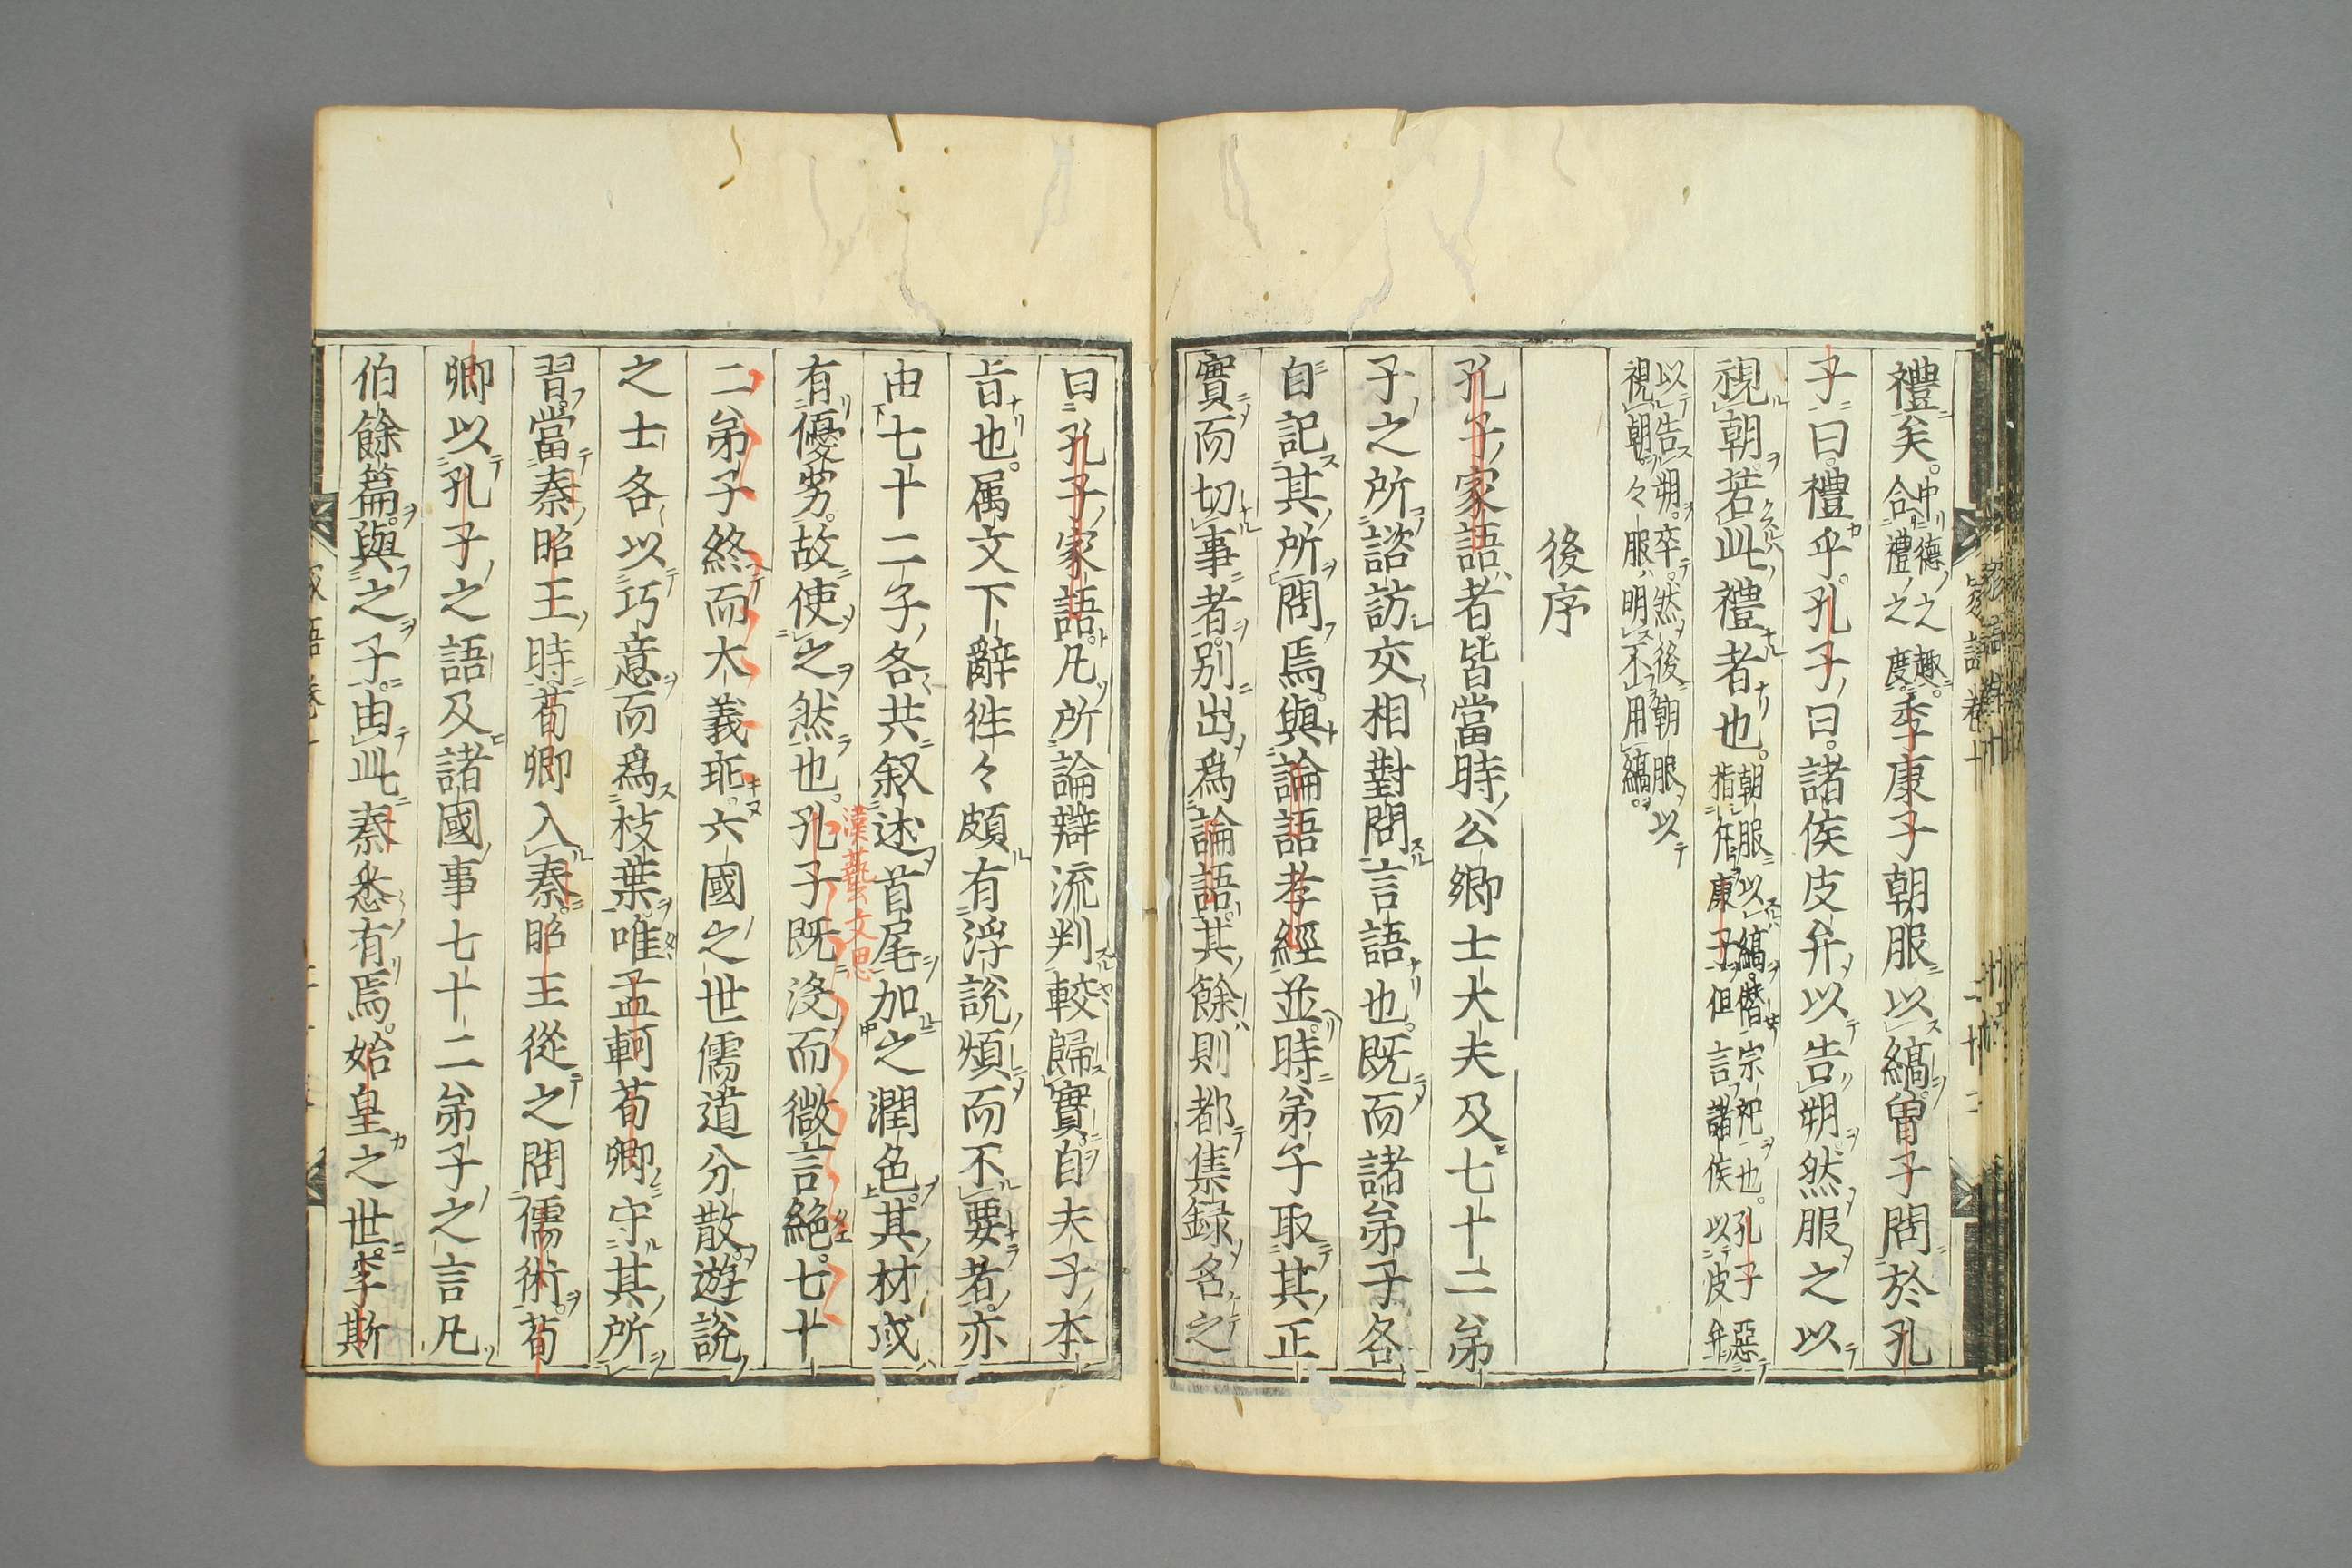 禮矣。中德之趣。合禮之度。季康子朝服以縞曾子問於孔
子曰。禮乎。孔子曰。諸侯皮弁以告朔。然服之以
視朝若此禮者也。朝服以縞。僭宋禮也。孔子惡指言康子但言諸侯以皮弁
以告朔。卒然後朝服以視朝々服明不用縞。
後序
孔子家語者皆當時公卿士大夫及七十二弟
子之所諮訪交相對問言語也。既而諸弟子各
自記其所問焉。與論語孝經並時弟子取其正
實而切事者。別出爲論語。其餘則都集録名之
曰孔子家語。凡所論辯流判較歸實自夫子本
旨也。属文下辭徃々頗有浮説煩而不要者。亦
由七十二子各共叙述首尾加之潤色。其材或
有優劣。故使之然也。孔子既没而微言絶。七十
二弟子終而大義乖。六國之世儒道分散。遊説
之士各以巧意而爲枝葉。唯孟軻荀卿守其所
習。當秦昭王時荀卿入秦。昭王從之問儒術。荀
卿以孔子之語及諸國事七十二弟子之言凡
伯餘篇。與之子。由此秦悉有焉。始皇之世。李斯
漢藝文